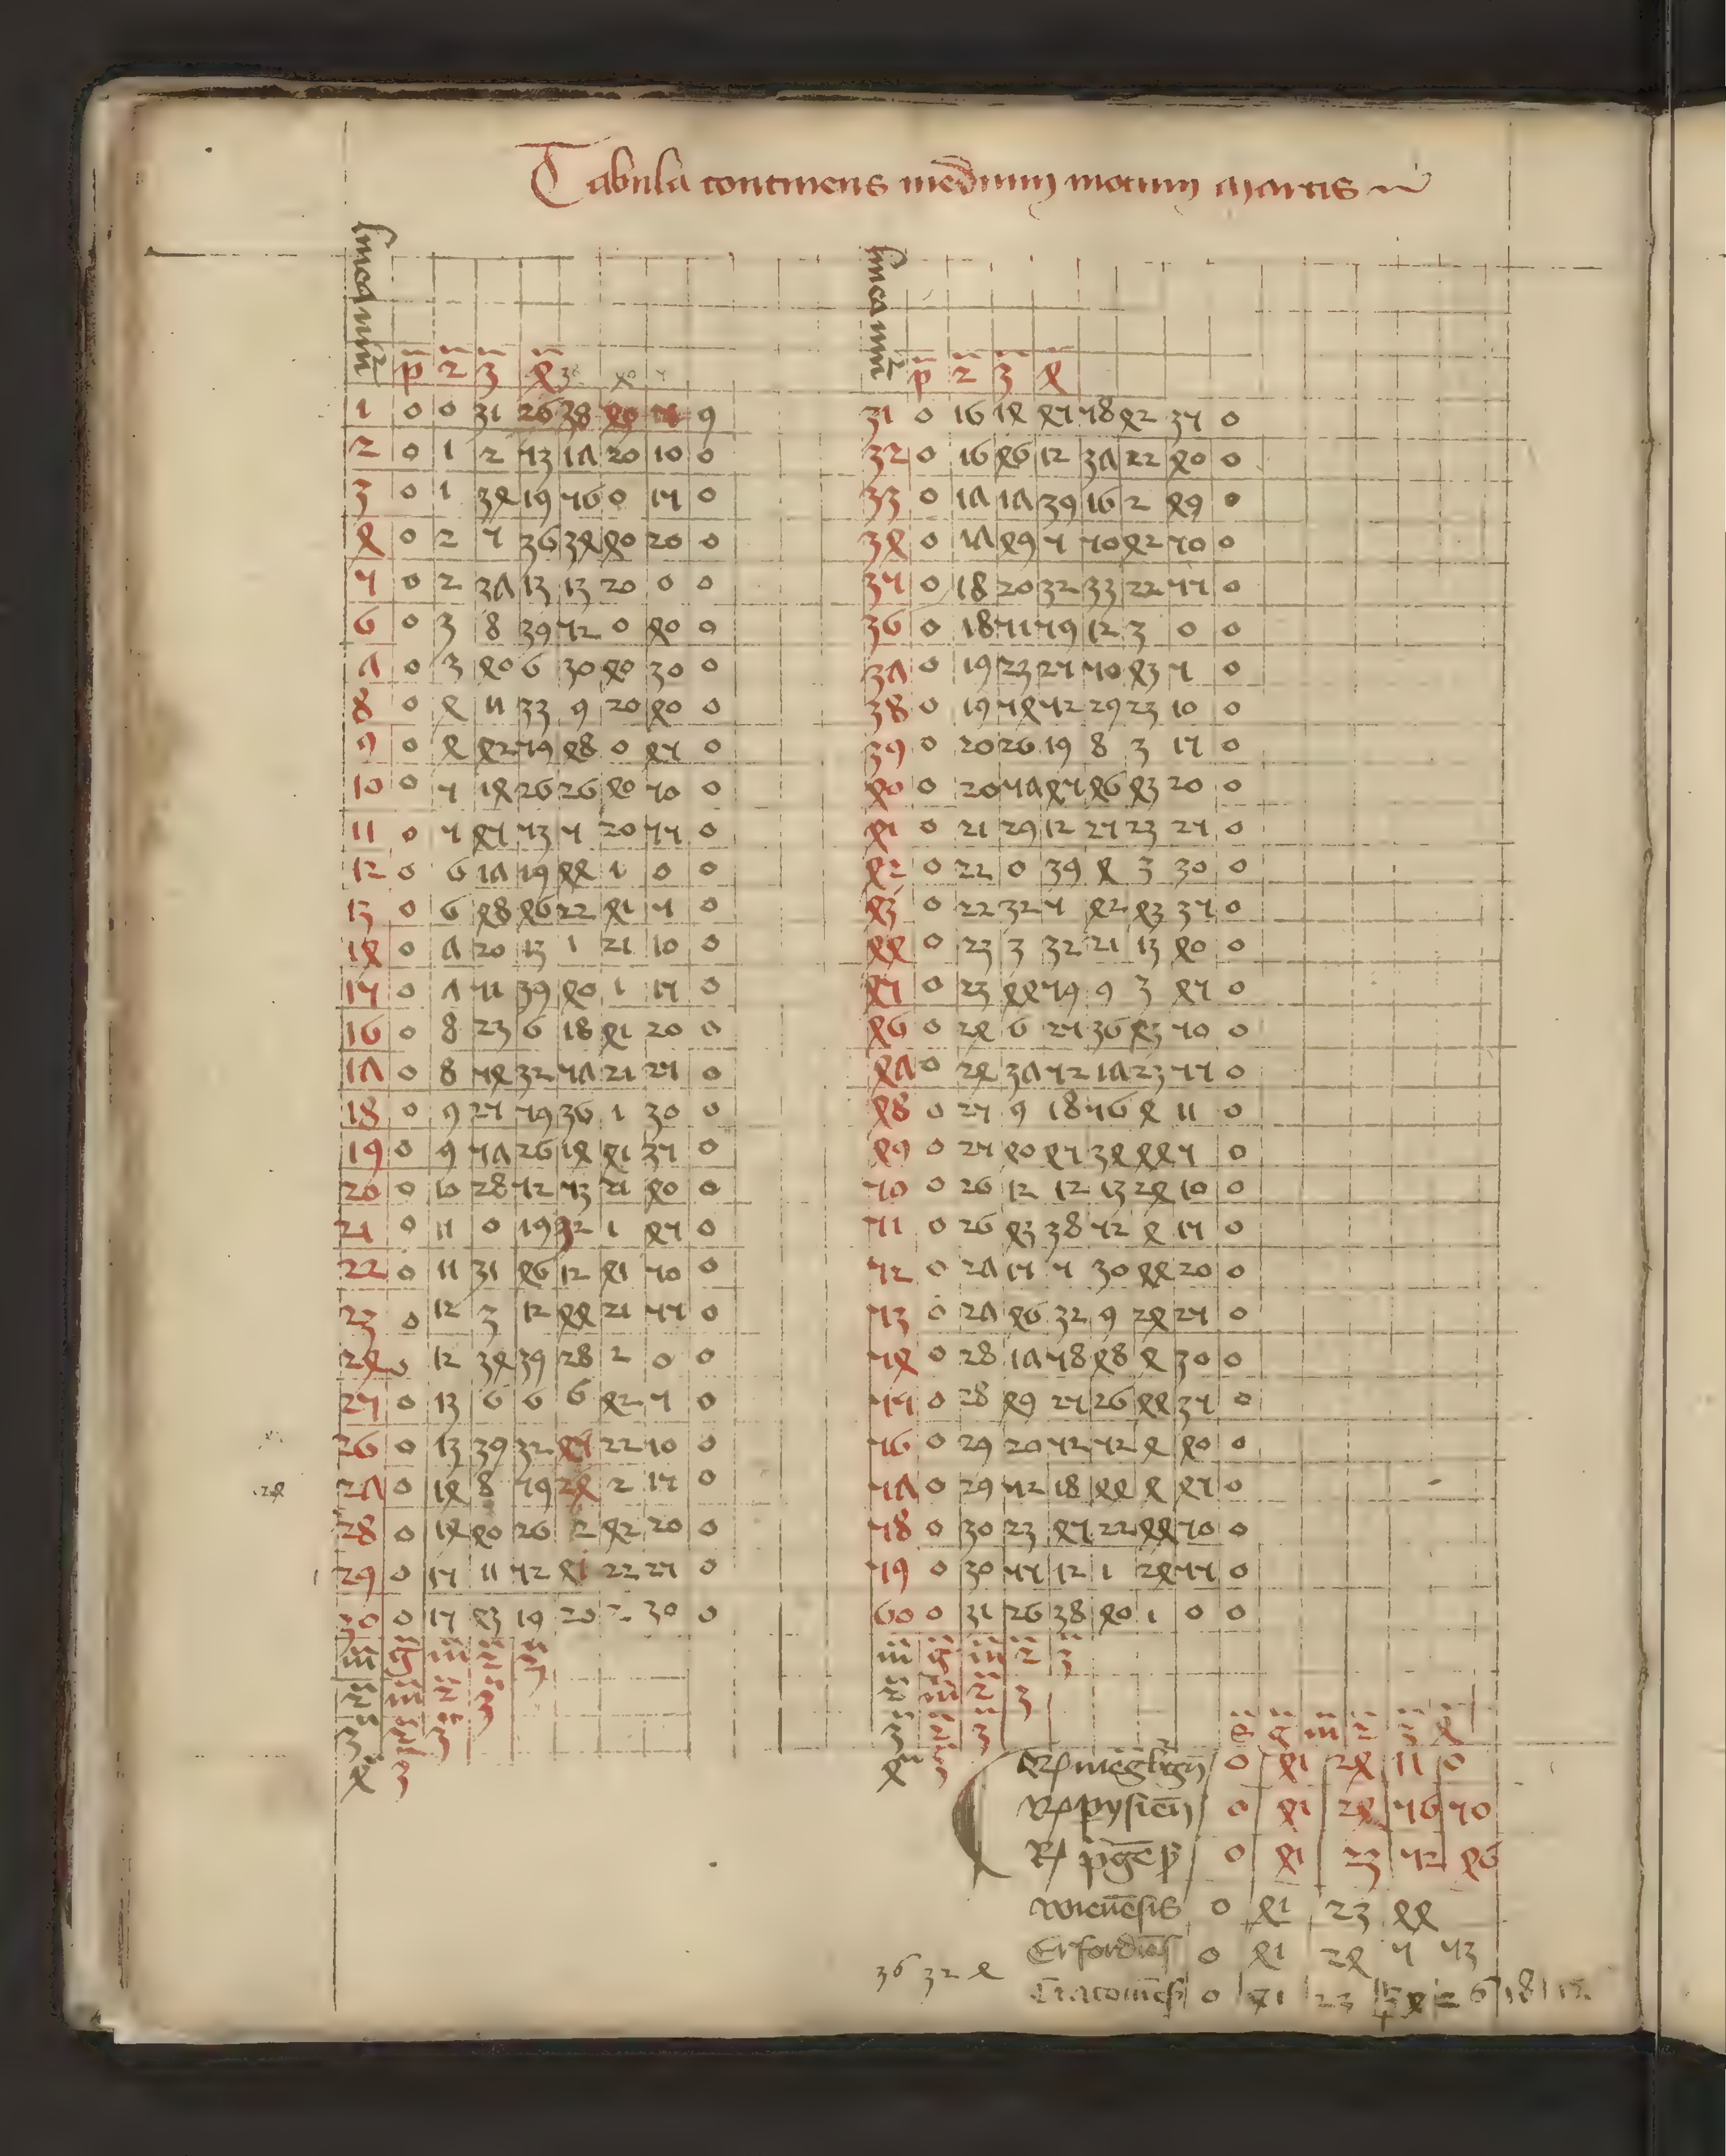 Tabula continens medium motum martis
numerus
p̄ 2 3 4
1 0 0 31 26 38 40 5 9
2 0 1 2 53 17 20 10 0
3 0 1 34 19 56 0 15 0
4 0 2 5 36 34 40 20 0
5 0 2 37 13 13 20 0 0
6 0 3 8 39 52 0 40 0
7 0 3 40 6 30 40 30 0
8 0 4 11 33 9 20 40 0
9 0 4 42 59 48 0 45 0
10 0 5 14 26 26 40 50 0
11 0 5 45 53 5 20 55 0
12 0 6 17 19 44 1 0 0
13 0 6 48 46 22 41 5 0
14 0 7 20 13 1 21 10 0
15 0 7 51 39 40 1 15 0
16 0 8 23 6 18 41 20 0
17 0 8 54 32 57 21 25 0
18 0 9 25 59 36 1 30 0
19 0 9 57 26 14 41 35 0
20 0 10 28 52 53 21 40 0
21 0 11 0 19 32 1 45 0
22 0 11 31 46 12 41 50 0
23 0 12 3 12 44 21 55 0
24 0 12 34 39 28 2 0 0
25 0 13 6 6 6 42 5 0
26 0 13 39 32 45 22 10 0
27 0 14 8 59 24 2 15 0
28 0 14 40 26 2 42 20 0
29 0 15 11 52 41 22 25 0
30 0 15 43 19 20 2 30 0
m̄ ḡ m̄ 2 3
2 m̄ 2 3
3 2 3
4 3
24
numerus
p̄ 2 3 4
31 0 16 14 45 58 42 35 0
32 0 16 46 12 37 22 40 0
33 0 17 17 39 16 2 49 0
34 0 17 49 5 50 42 50 0
35 0 18 20 32 33 22 55 0
36 0 18 51 59 12 3 0 0
37 0 19 23 25 50 43 5 0
38 0 19 54 52 29 23 10 0
39 0 20 26 19 8 3 15 0
40 0 20 57 45 46 43 20 0
41 0 21 29 12 25 23 25 0
42 0 22 0 39 4 3 30 0
43 0 22 32 5 42 43 35 0
44 0 23 3 32 21 13 40 0
45 0 23 44 59 9 3 45 0
46 0 24 6 25 36 43 50 0
47 0 24 37 52 17 23 55 0
48 0 25 9 18 56 4 11 0
49 0 25 40 45 34 44 5 0
50 0 26 12 12 13 24 10 0
51 0 26 43 38 52 4 15 0
52 0 27 15 5 30 44 20 0
53 0 27 46 32 9 24 25 0
54 0 28 17 58 48 4 30 0
55 0 28 49 25 26 44 35 0
56 0 29 20 52 52 4 40 0
57 0 29 52 18 44 4 45 0
58 0 30 23 45 22 44 50 0
59 0 30 55 12 1 24 55 0
60 0 31 26 38 40 1 0 0
m̄ ḡ m̄ 2 3
2 m̄ 2 3
3 2 3
4 3
ḡ m̄ 2 3 4
0 41 24 11 0
0 41 24 56 50
0 41 23 52 46
wienēsis 0 41 23 44
Erfordiēs 0 41 24 5 53
Cracouiēs 0 41 23
36 32 4